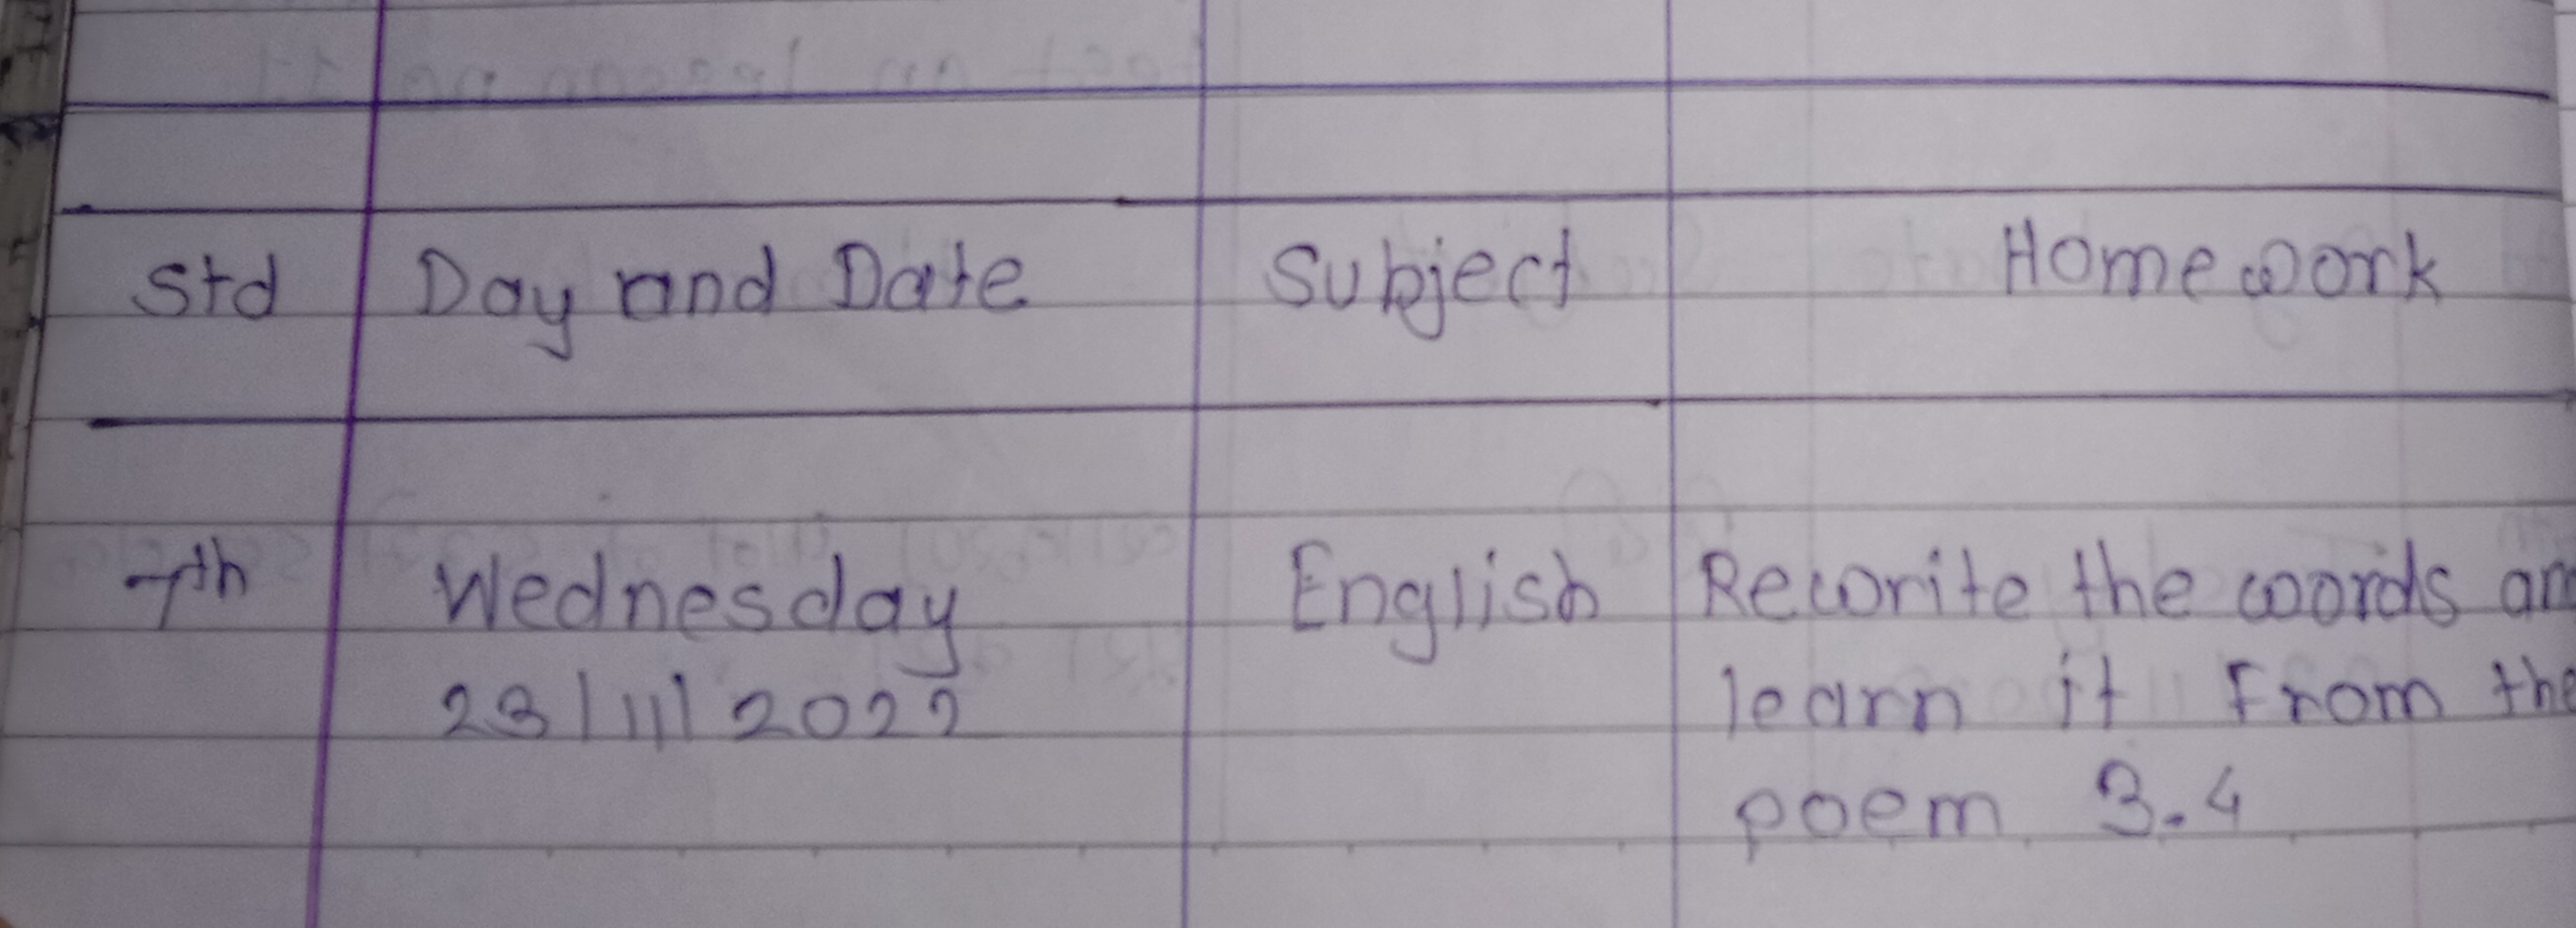 Std Day and Date Subject Home work
7th Wednesday English Rewrite the words an
23/11/2022 learn it From the
poem 3.4